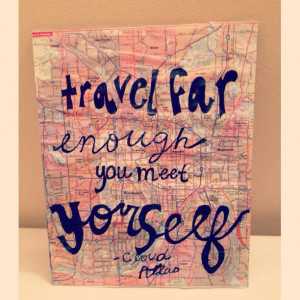 travel far
enough
you meet
yourself
- Cloud
Atlas